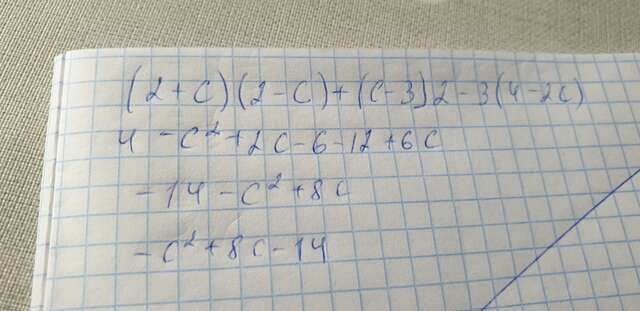 (2+c)(2-c)+(c-3)2-3(4-2c)
4-c²+2c-6-12+6c
-14-c²+8c
-c²+8c-14